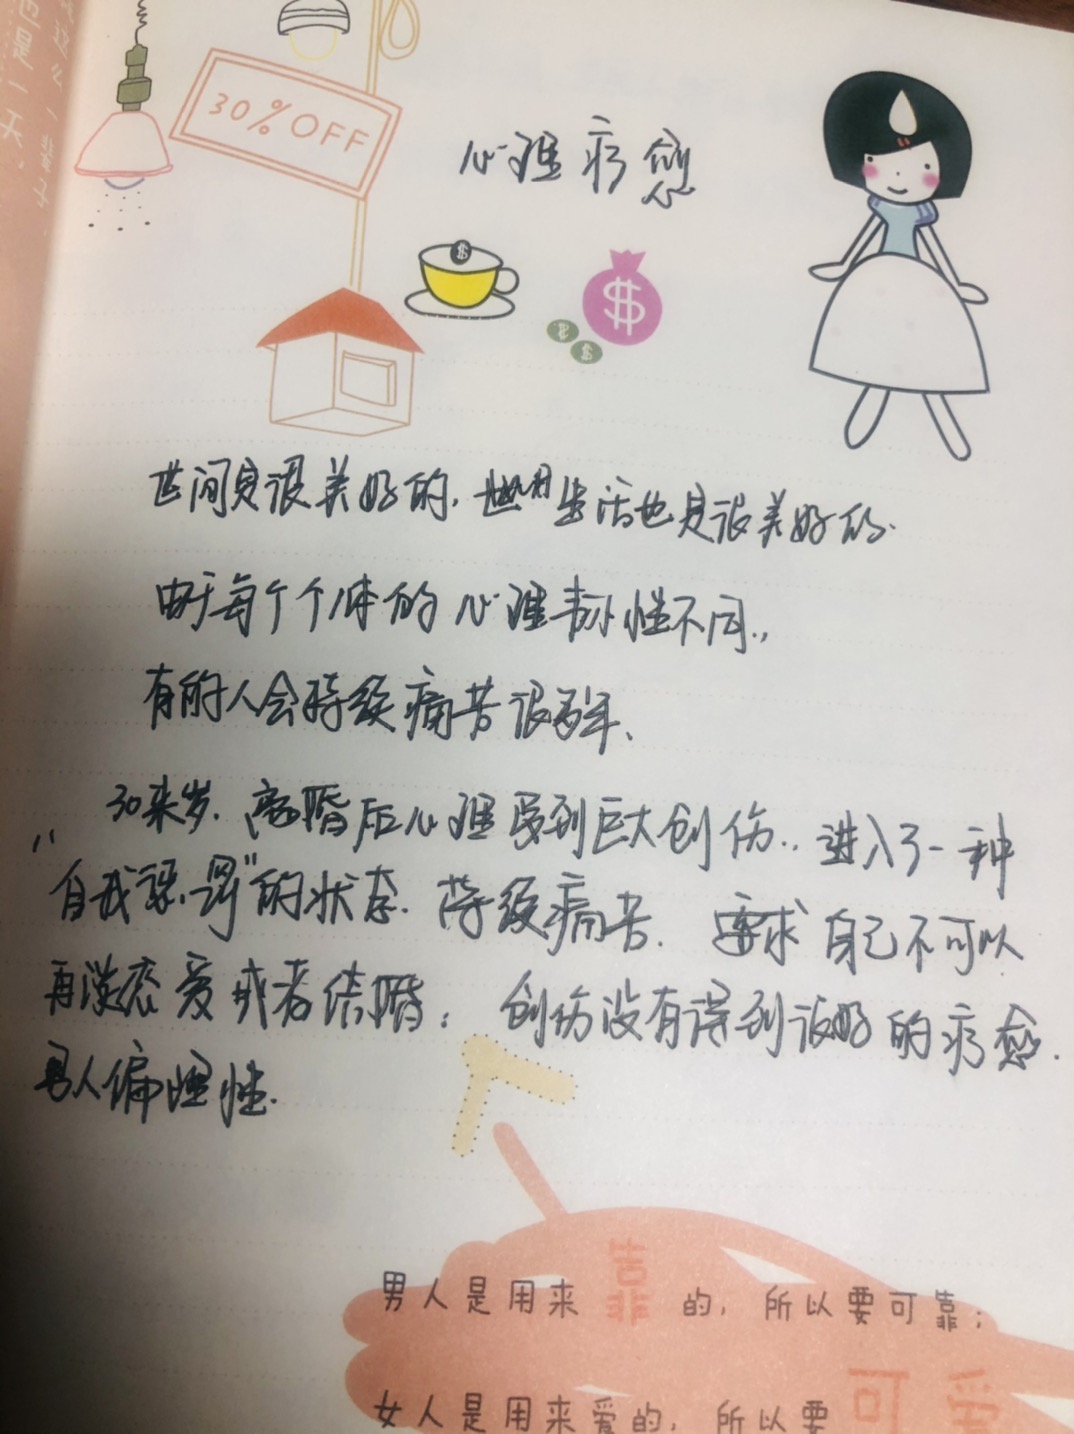 30%OFF
心理疗愈
$
$
世间是很美好的. 生活也是很美好的.
由于每个个体的心理韧性不同.,
有的人会持续痛苦很多年、
30来岁. 离婚后心理受到巨大创伤.. 进入了一种
"自我惩罚"的状态. 持续痛苦. 要求自己不可以
再谈恋爱或者结婚; 创伤没有得到很好的疗愈.
男人偏理性.
男人是用来靠的,所以要可靠;
女人是用来爱的,所以要可爱